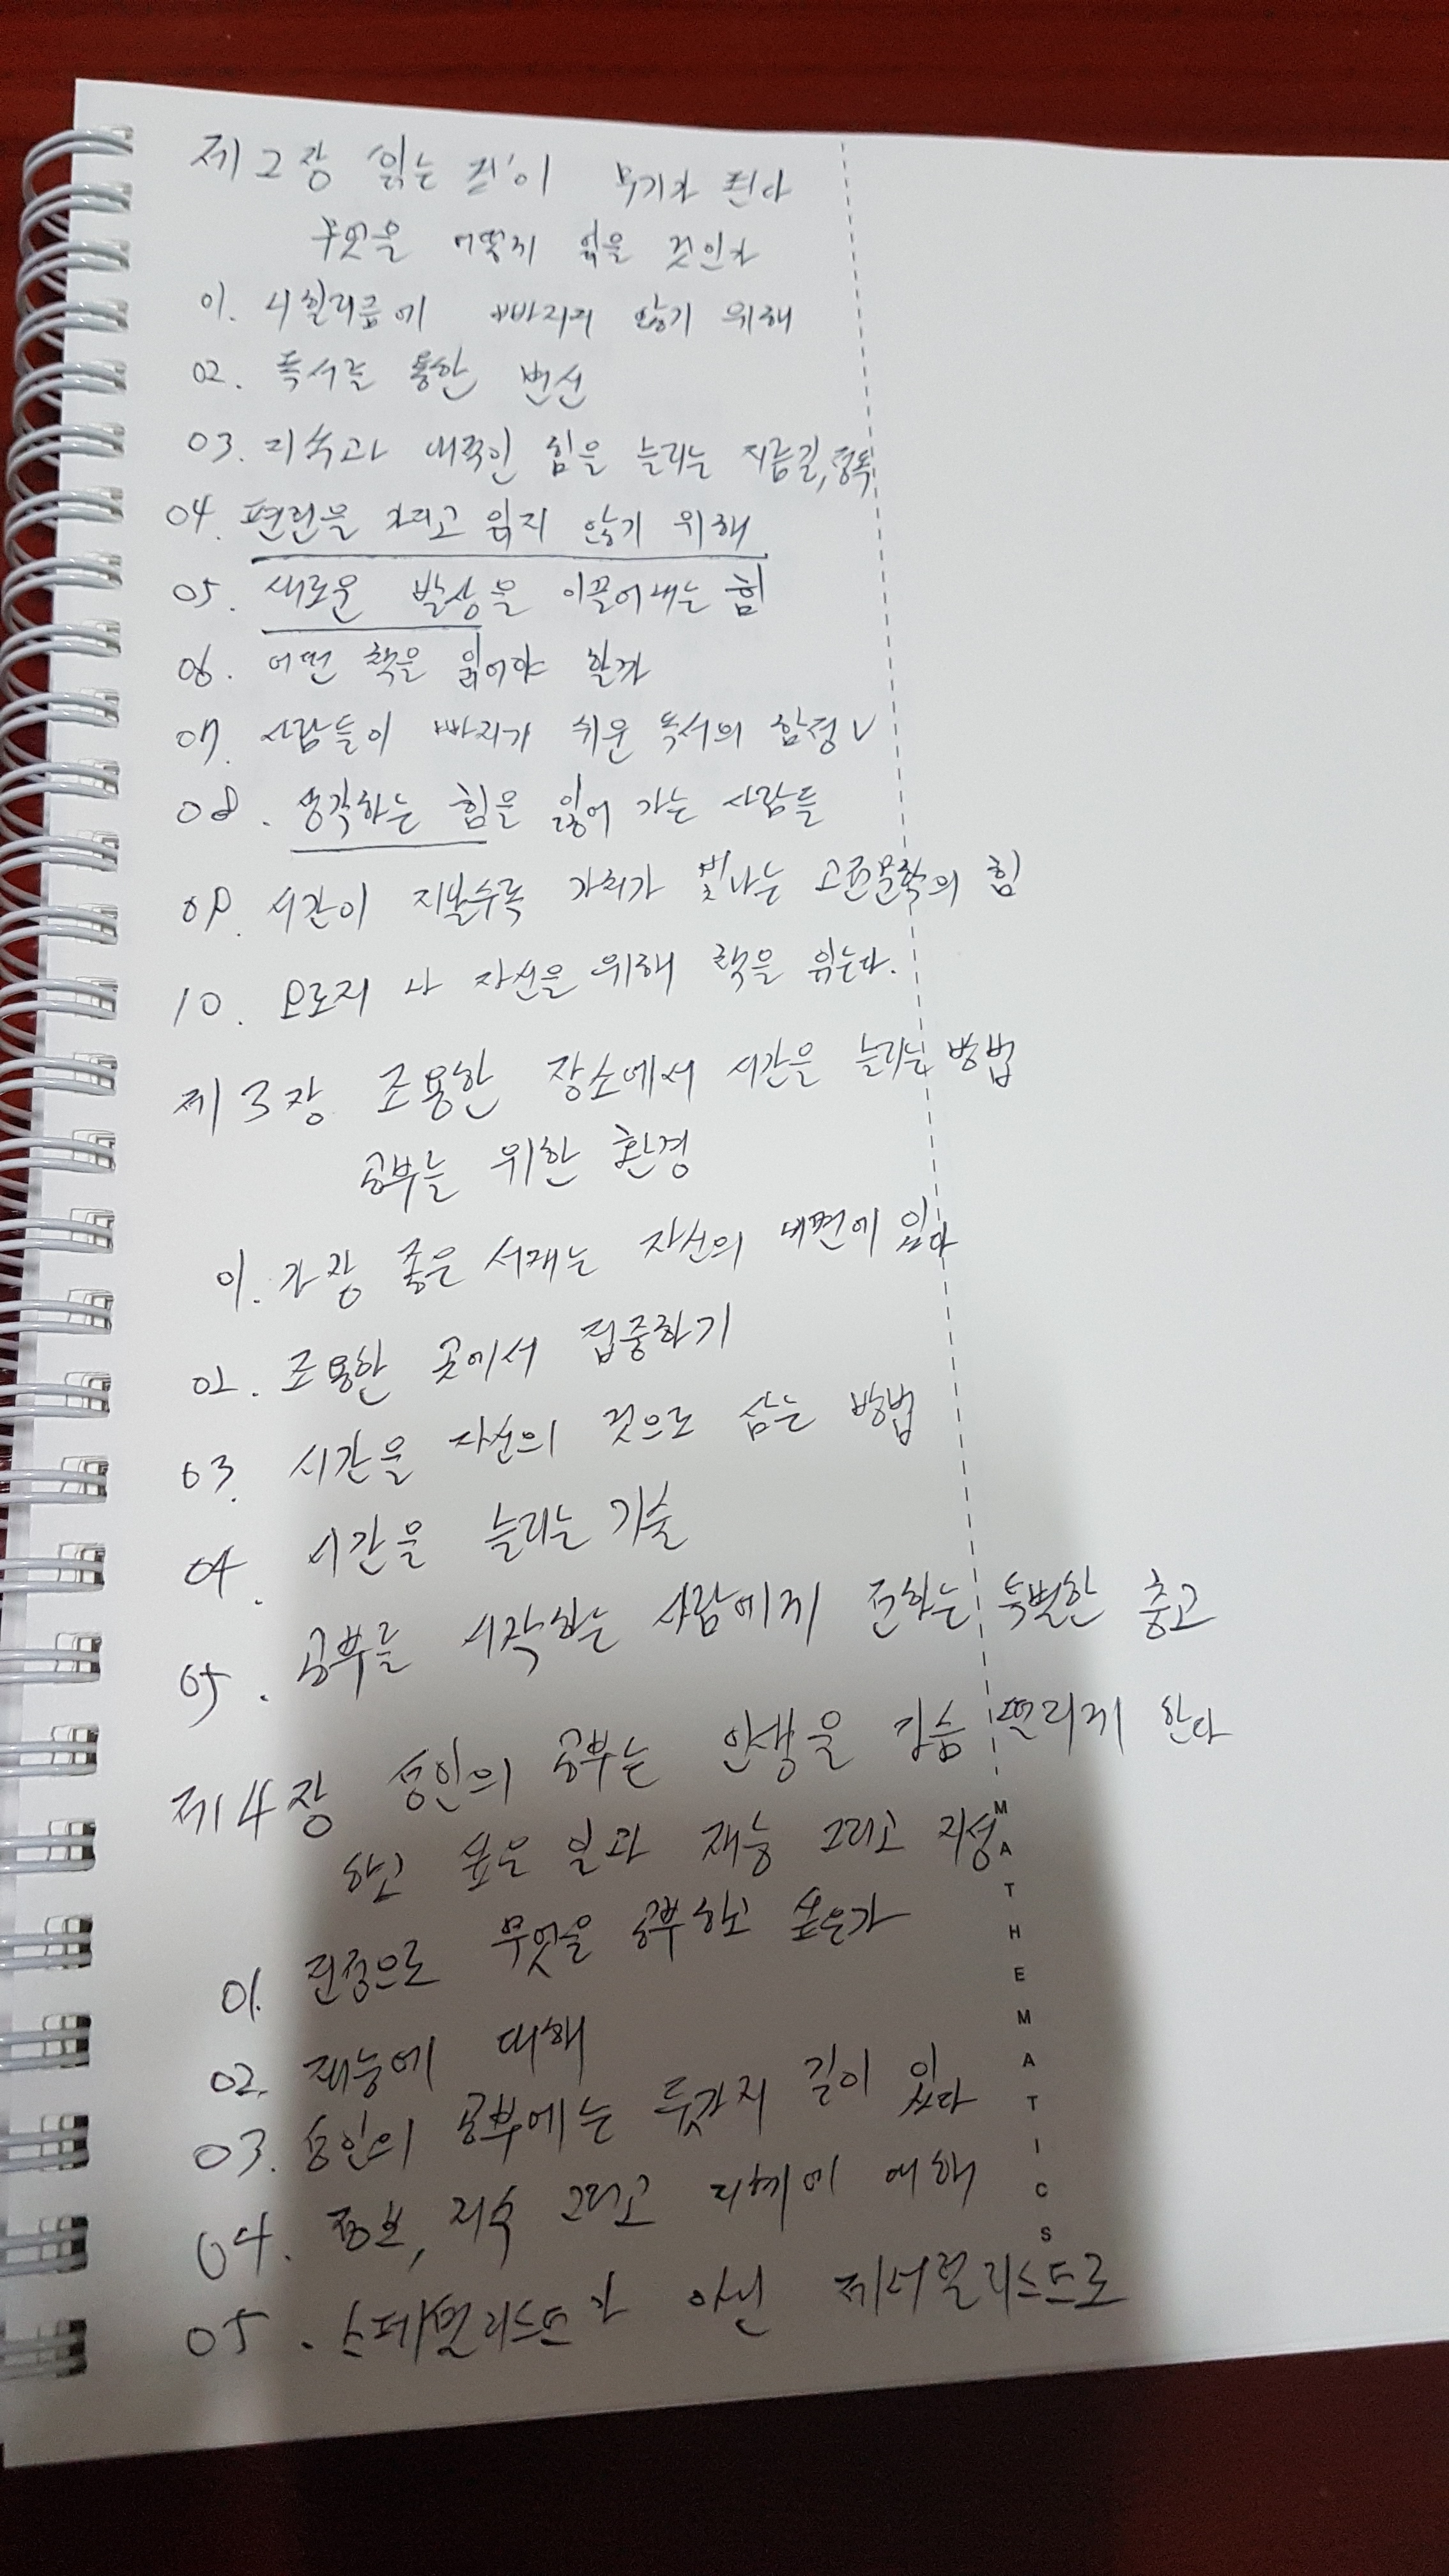 제2장 '읽는 것'이 무기가 된다
무엇을 어떻게 읽을 것인가
01. 니힐리즘에 빠지지 않기 위해
02. 독서를 통한 변신
03. 지속과 내적인 힘을 늘리는 지름길, 정독
04. 편견을 가지고 읽지 않기 위해
05. 새로운 발상을 이끌어내는 힘
06. 어떤 책을 읽어야 할까
07. 사람들이 빠지기 쉬운 독서의 함정 V
08. 생각하는 힘을 잃어 가는 사람들
09. 시간이 지날수록 가치가 빛나는 고전문학의 힘
10. 오로지 나 자신을 위해 책을 읽는다.
제3장 조용한 장소에서 시간을 늘리는 방법
공부를 위한 환경
01. 가장 좋은 서재는 자신의 내면에 있다
02. 조용한 곳에서 집중하기
03. 시간을 자신의 것으로 삼는 방법
04. 시간을 늘리는 기술
05. 공부를 시작하는 사람에게 전하는 특별한 충고
제4장 성인의 공부는 인생을 가슴 떨리게 한다
하고 싶은 일과 재능 그리고 지성
01. 진정으로 무엇을 공부하고 싶은가
02. 재능에 대해
03. 성인의 공부에는 두가지 길이 있다
04. 정보, 지식 그리고 지혜에 대해
05. 스페셜리스트가 아닌 제너럴리스트로
MATHEMATICS